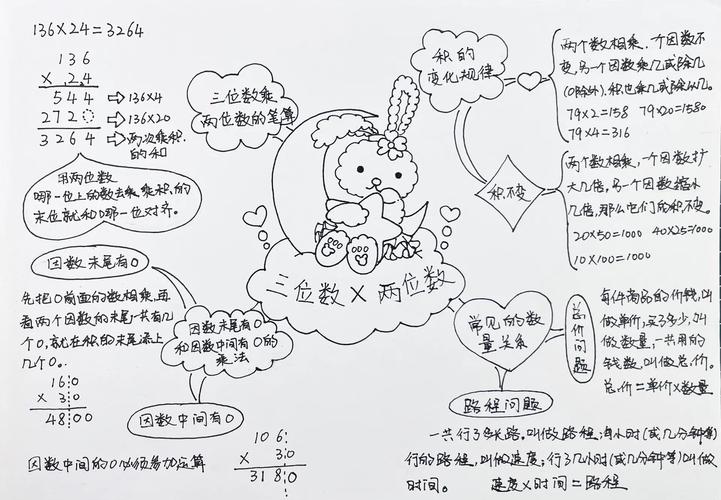 136×24=3264
136
×.24
544 ⇨136×4
272 ⇨136×20
3264 ⇨两次乘积
的和
用两位数
哪一位上的数去乘,乘积的
末位就和哪一位对齐。
三位数乘
两位数的笔算
积的
变化规律
两个数相乘,一个因数不
变,另一个因数乘几或除几
(0除外),积也乘几或除以几。
79×2=158 79×20=1580
79×4=316
积不变
两个数相乘,一个因数扩
大几倍,另一个因数缩小
几倍,那么它们的积不变。
20×50=1000 40×25=1000
10×100=1000
三位数×两位数
因数末尾有0
先把0前面的数相乘,再
看两个因数的末尾一共有几
个0,就在积的末尾添上
几个0。
160
×30
4800
因数末尾有0
和因数中间有0的
乘法
因数中间有0
因数中间的0必须参加运算
106
×30
3180
常见的数
量关系
总价问题
每件商品的价钱,叫
做单价,买了多少,叫
做数量,一共用的
钱数,叫做总价。
总价=单价×数量
路程问题
一共行了多长路,叫做路程;每小时(或几分钟等)
行的路程,叫做速度;行了几小时(或几分钟等)叫做
时间。 速度×时间=路程